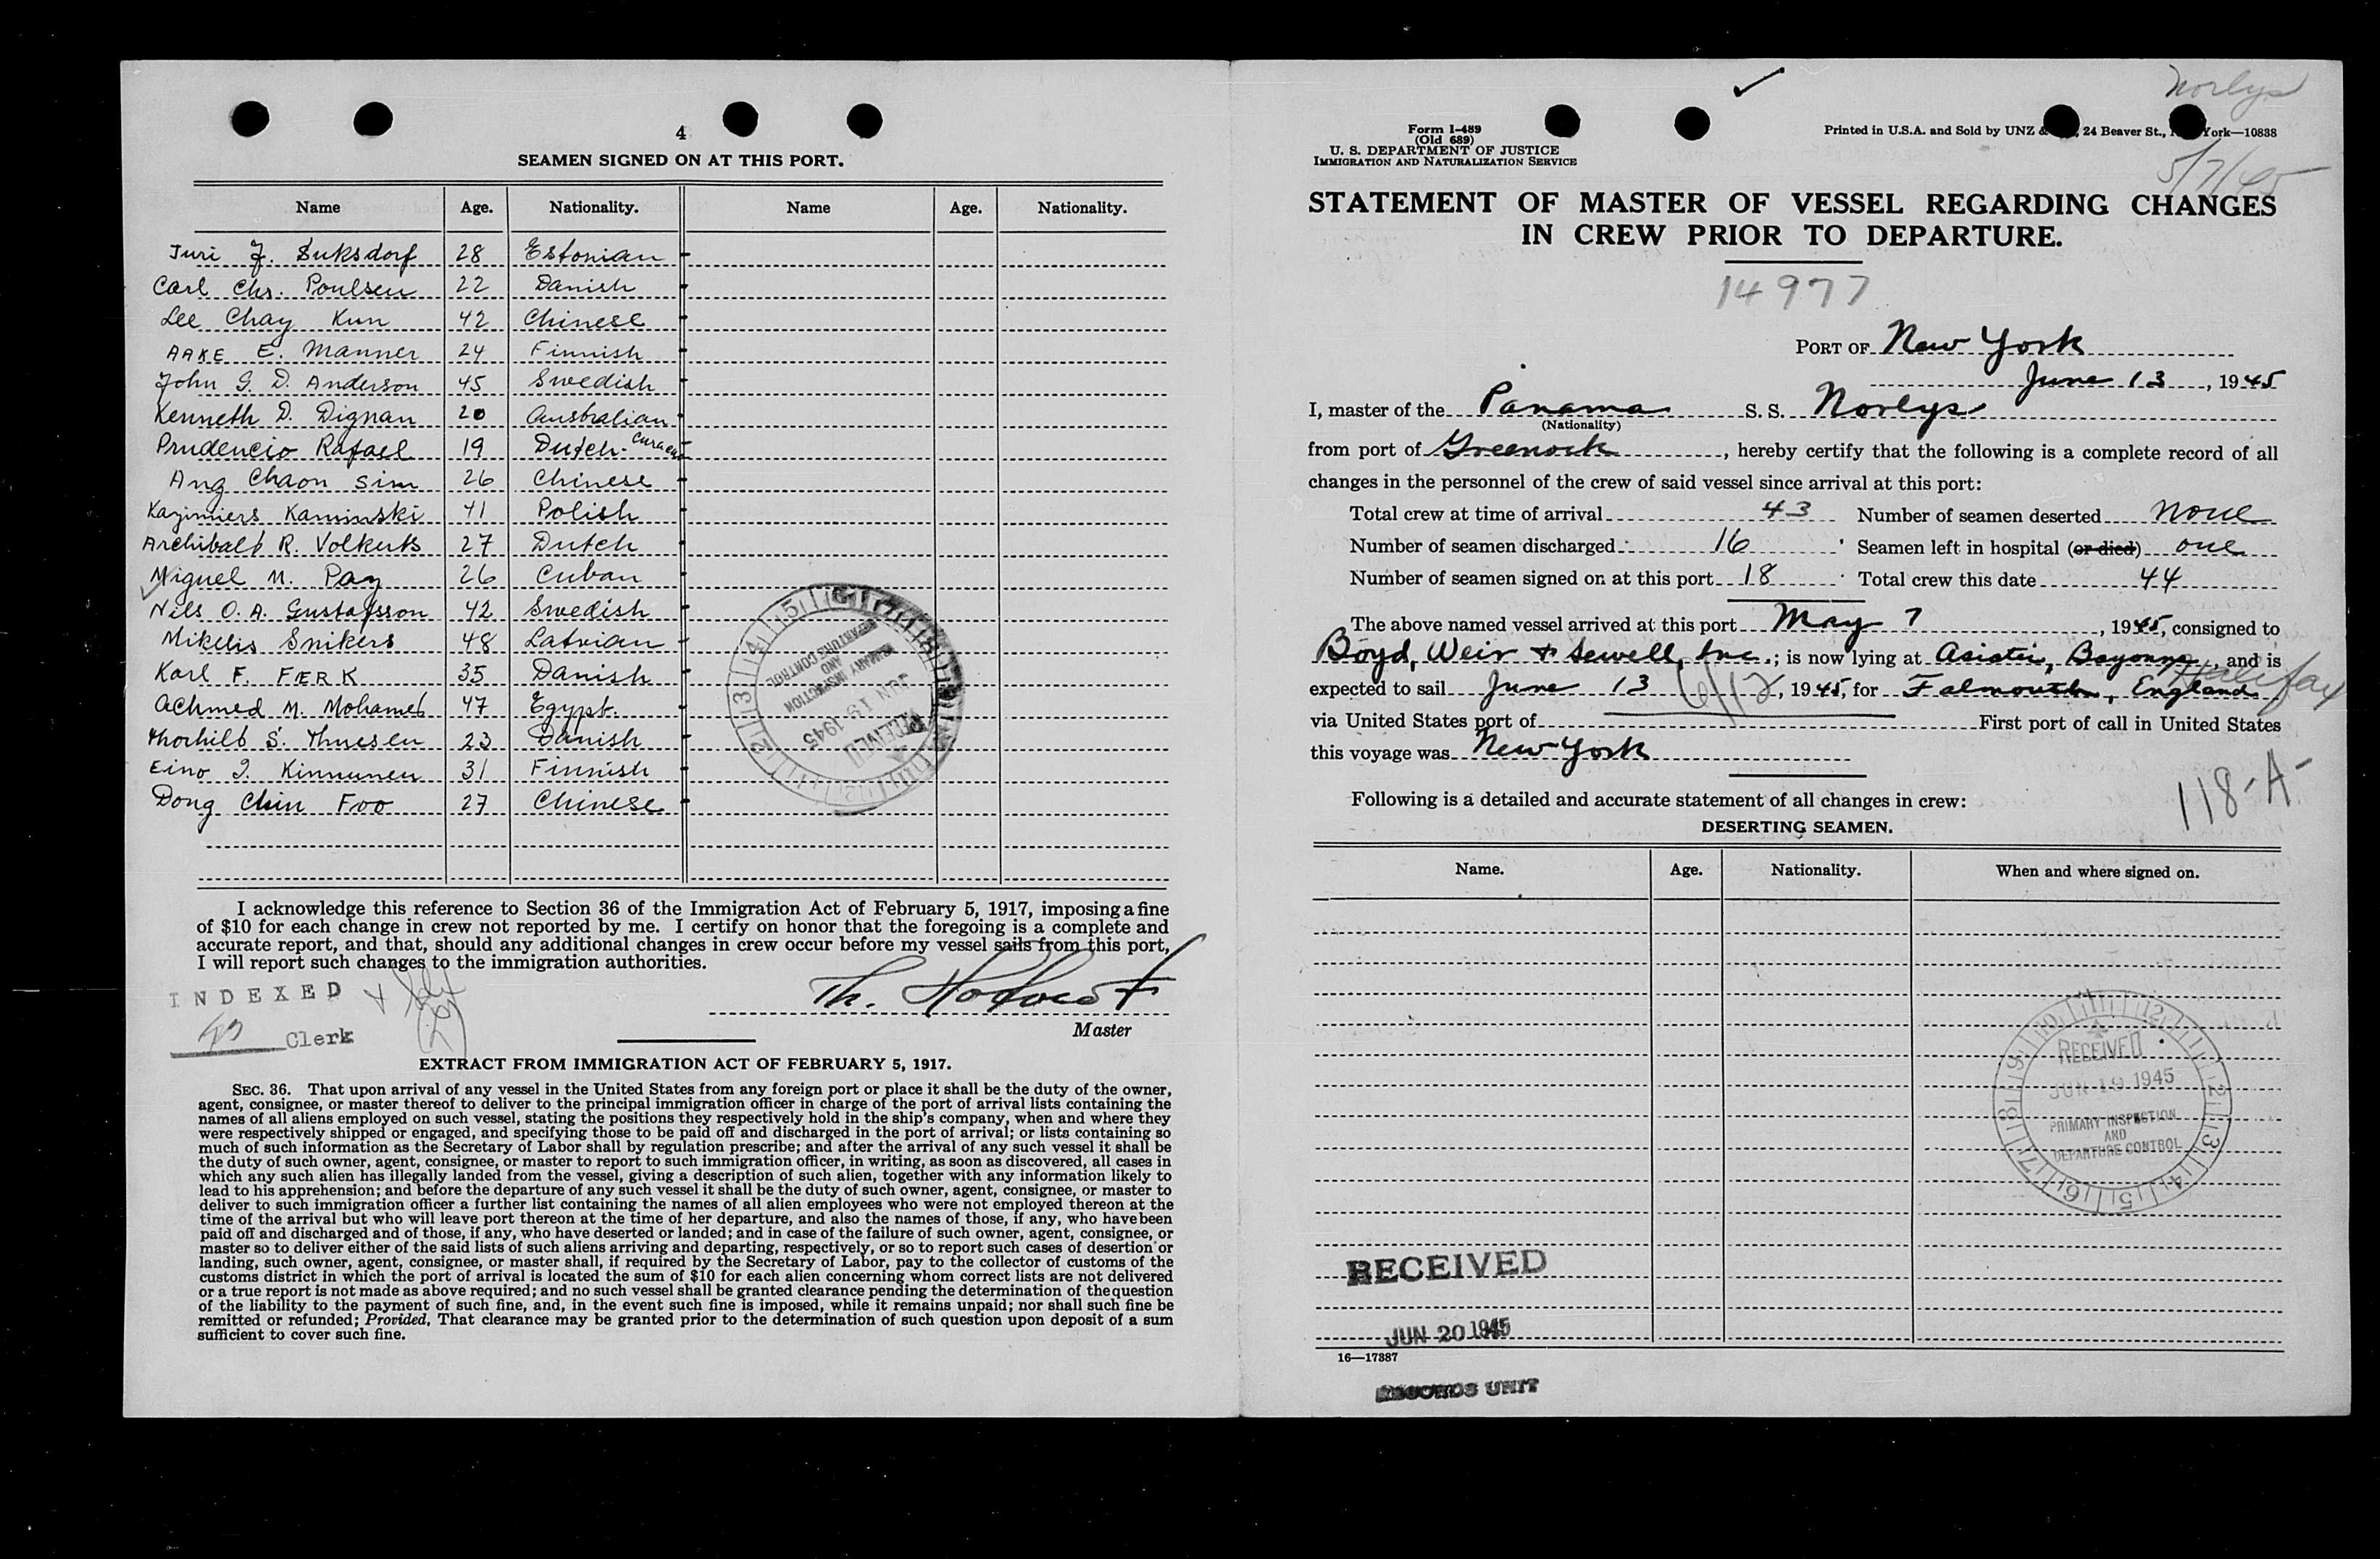 4
SEAMEN SIGNED ON AT THIS PORT.
Name Age. Nationality. Name Age. Nationality.
Juri J. Suksdorf 28 Estonian
Carl Chr. Poulsen 22 Danish
Lee Chay Kun 42 Chinese
AAKE E. Manner 24 Finnish
John G. D. Anderson 45 Swedish
Kenneth D. Dignan 20 Australian
Prudencio Rafael 19 Dutch- Curacao
Ang Chaon Sim 26 Chinese
Kazimiers Kaminski 41 Polish
Archibald R. Volkerts 27 Dutch
Miguel M. Paz 26 Cuban
Nils O. A. Gustafsson 42 Swedish
Mikelis Snikers 48 Latvian
Karl F. FÆRK 35 Danish
Achmed M. Mohamed 47 Egypt.
Thorhild S. Thuesen 23 Danish
Eino I. Kinnunen 31 Finnish
Dong Chin Foo 27 Chinese
RECEIVED
JUN 19 1945
PRIMARY INSPECTION
AND
DEPARTURE CONTROL
I acknowledge this reference to Section 36 of the Immigration Act of February 5, 1917, imposing a fine
of $10 for each change in crew not reported by me. I certify on honor that the foregoing is a complete and
accurate report, and that, should any additional changes in crew occur before my vessel sails from this port,
I will report such changes to the immigration authorities.
INDEXED
Clerk
Th.
Master
EXTRACT FROM IMMIGRATION ACT OF FEBRUARY 5, 1917.
SEC. 36. That upon arrival of any vessel in the United States from any foreign port or place it shall be the duty of the owner,
agent, consignee, or master thereof to deliver to the principal immigration officer in charge of the port of arrival lists containing the
names of all aliens employed on such vessel, stating the positions they respectively hold in the ship's company, when and where they
were respectively shipped or engaged, and specifying those to be paid off and discharged in the port of arrival; or lists containing so
much of such information as the Secretary of Labor shall by regulation prescribe; and after the arrival of any such vessel it shall be
the duty of such owner, agent, consignee, or master to report to such immigration officer, in writing, as soon as discovered, all cases in
which any such alien has illegally landed from the vessel, giving a description of such alien, together with any information likely to
lead to his apprehension; and before the departure of any such vessel it shall be the duty of such owner, agent, consignee, or master to
deliver to such immigration officer a further list containing the names of all alien employees who were not employed thereon at the
time of the arrival but who will leave port thereon at the time of her departure, and also the names of those, if any, who have been
paid off and discharged and of those, if any, who have deserted or landed; and in case of the failure of such owner, agent, consignee, or
master so to deliver either of the said lists of such aliens arriving and departing, respectively, or so to report such cases of desertion or
landing, such owner, agent, consignee, or master shall, if required by the Secretary of Labor, pay to the collector of customs of the
customs district in which the port of arrival is located the sum of $10 for each alien concerning whom correct lists are not delivered
or a true report is not made as above required; and no such vessel shall be granted clearance pending the determination of the question
of the liability to the payment of such fine, and, in the event such fine is imposed, while it remains unpaid; nor shall such fine be
remitted or refunded; Provided, That clearance may be granted prior to the determination of such question upon deposit of a sum
sufficient to cover such fine.
Norlys
Form I-489
(Old 689)
U. S. DEPARTMENT OF JUSTICE
IMMIGRATION AND NATURALIZATION SERVICE
Printed in U.S.A. and Sold by UNZ & 24 Beaver St., York—10838
5/7/45
STATEMENT OF MASTER OF VESSEL REGARDING CHANGES
IN CREW PRIOR TO DEPARTURE.
14977
PORT OF New York
June 13, 1945
I, master of the Panama S. S. Norlys
(Nationality)
from port of Greenock, hereby certify that the following is a complete record of all
changes in the personnel of the crew of said vessel since arrival at this port:
Total crew at time of arrival 43 Number of seamen deserted none
Number of seamen discharged 16 Seamen left in hospital (or died) one
Number of seamen signed on at this port 18 Total crew this date 44
The above named vessel arrived at this port May 7, 1945, consigned to
Boyd, Weir & Sewell, Inc.; is now lying at Asiatic, Bayonne, and is
expected to sail June 13 6/12, 1945, for Falmouth, England Halifax
via United States port of First port of call in United States
this voyage was New York
118-A-
Following is a detailed and accurate statement of all changes in crew:
DESERTING SEAMEN.
Name. Age. Nationality. When and where signed on.
RECEIVED
JUN 19 1945
PRIMARY INSPECTION
AND
DEPARTURE CONTROL
RECEIVED
JUN 20 1945
16—17387
RECORDS UNIT